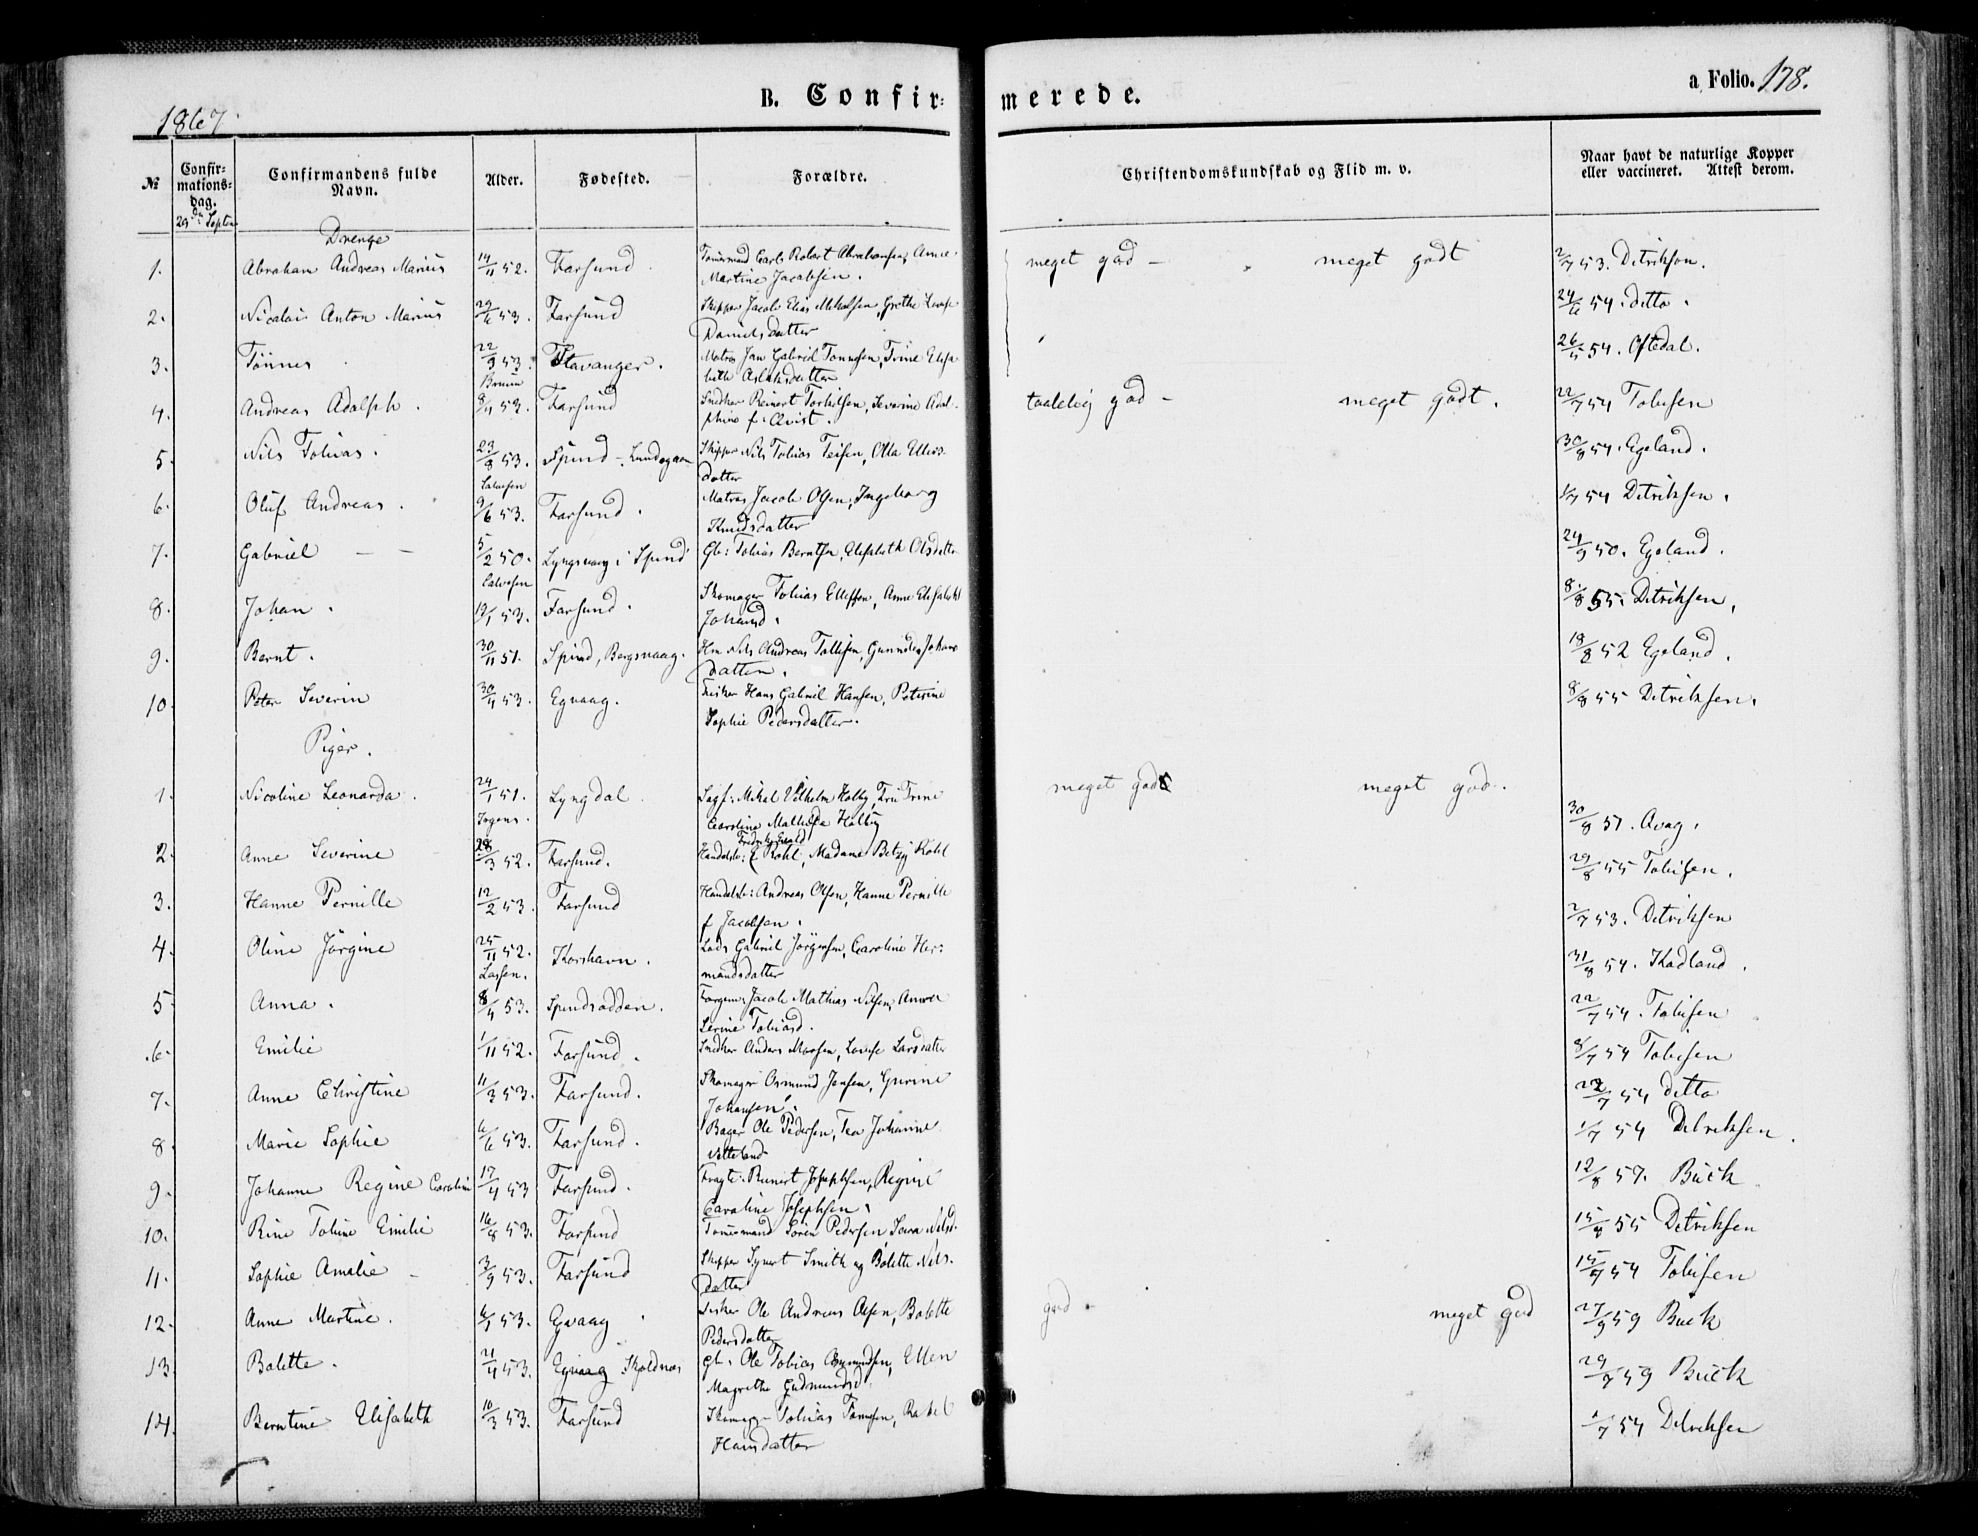 1867.
B. Confirmerede.
a Folio. 178.
№ Confirmationsdag. Confirmandens fulde Navn. Alder. Fødested. Forældre. Christendomskundskab og Flid m. v. Naar havt de naturlige Kopper eller vaccineret. Attest derom.
29de Septbr
Drenge
1. Abraham Andreas Marius 14/11 52. Farsund. Tømmermand Carl Robert Abrahamsen, Anne Martine Jacobsen. meget god - meget godt 2/7 53. Ditrikson.
2. Nicolai Anton Marius 29/6 53. Farsund Skipper Jacob Elias Mikalsen, Grethe Lovise Danielsdatter 24/6 54. ditto.
3. Tønnes 22/9 53. Stavanger. Matros Jan Gabriel Tønnesen, Trine Elisabeth Aslaksdatter 26/5 54. Oftedal.
4. Andreas Adolph. 8/11 53. Farsund Snedker Reinert Torkilsen, Severine Adolphine f. Qvist. taalelig god - meget godt. 22/7 54 Tobisen
5. Nils Tobias. 23/8 53. Spind - Skipper Nils Tobias Teisen, Olla datter 30/8 54. Egeland.
6. Oluf Andreas. 9/6 53. Farsund. Matros Jacob Olsen, Ingeborg Knudsdatter 1/7 54 Ditriksen.
7. Gabriel - - 5/2 50. Lyngsvaag i Spind Gb: Tobias Berntsen, Elisabeth Olsdatter 24/9 50. Egeland.
8. Johan. 19/1 53. Farsund. Skomager Tobias Ellefsen, Anne Elisabeth Johansd. 8/8 55. Ditriksen,
9. Bernt. 30/11 51. Spind, Bergsvaag. Hm Nils Andreas Tollisen, datter. 18/8 52 Egeland.
10. Peter Severin 30/11 53. Egvaag. Fisker Hans Gabriel Hansen, Peterine Sophie Pedersdatter. 8/8 55 Ditriksen.
Piger.
1. Nicoline Leonarda. 24/1 51. Lyngdal. Sagf: Mikal Vilhelm Holby, Fru Trine Caroline Mathilde Holby meget godt meget god. 30/8 51. Avag.
2. Anne Severine 28/3 52. Farsund. Handelsb: Røhl, Madame Betzy Røhl 29/8 55 Tobisen.
3. Hanne Pernille 12/2 53. Farsund Handelsb: Andreas Olsen, Hanne Pernille f Jacobsen. 2/7 53. Ditriksen
4. Oline Jørgine 25/11 52. Korshavn. Lods Gabriel Jørgensen, Caroline Hermandsdatter 31/8 54. Kadland.
5. Anna. 8/4 53. Spindsodden. Jacob Mathias Nilsen, Anne Serine Tobiasd. 22/7 54. Tobisen
6. Emilie 1/11 52. Farsund. Snedker Anders Monsen, Lovise Larsdatter 8/7 54 Tobisen
7. Anne Christine 11/3 53. Farsund. Skomager Osmund Jensen, Gurine Johansen. 22/7 54 ditto
8. Marie Sophie 6/6 53. Farsund. Bager Ole Pedersen, Tea Johanne Vetteland 1/7 54 Ditriksen.
9. Johanne Regine Caroline 17/4 53 Farsund. Reinert Josephsen, Regine Caroline Josephsen. 12/8 57. Buck
10. Rine Tobine Emilie 16/8 53. Farsund Tømmermand Søren Pedersen, Sara Nilsd. 15/8 55 Ditriksen
11. Sophie Amalie - 3/9 53. Farsund Skipper Syvert Smith og Bolette Nilsdatter 15/7 54 Tobisen
12. Anne Martine. 6/1 53. Egvaag Fisker Ole Andreas Olsen, Bolette Pedersdatter god - meget god 27/9 59 Buck
13 Bolette. 21/4 53. Egvaag Skoldnes gb. Ole Tobias Osmundsen, Ellen Magrethe Gudmundsd. 29/7 59 Buck
14. Berntine Elisabeth 10/3 53. Farsund Skomager Tobias Tønnesen, Rakel Hansdatter 1/7 54 Ditriksen